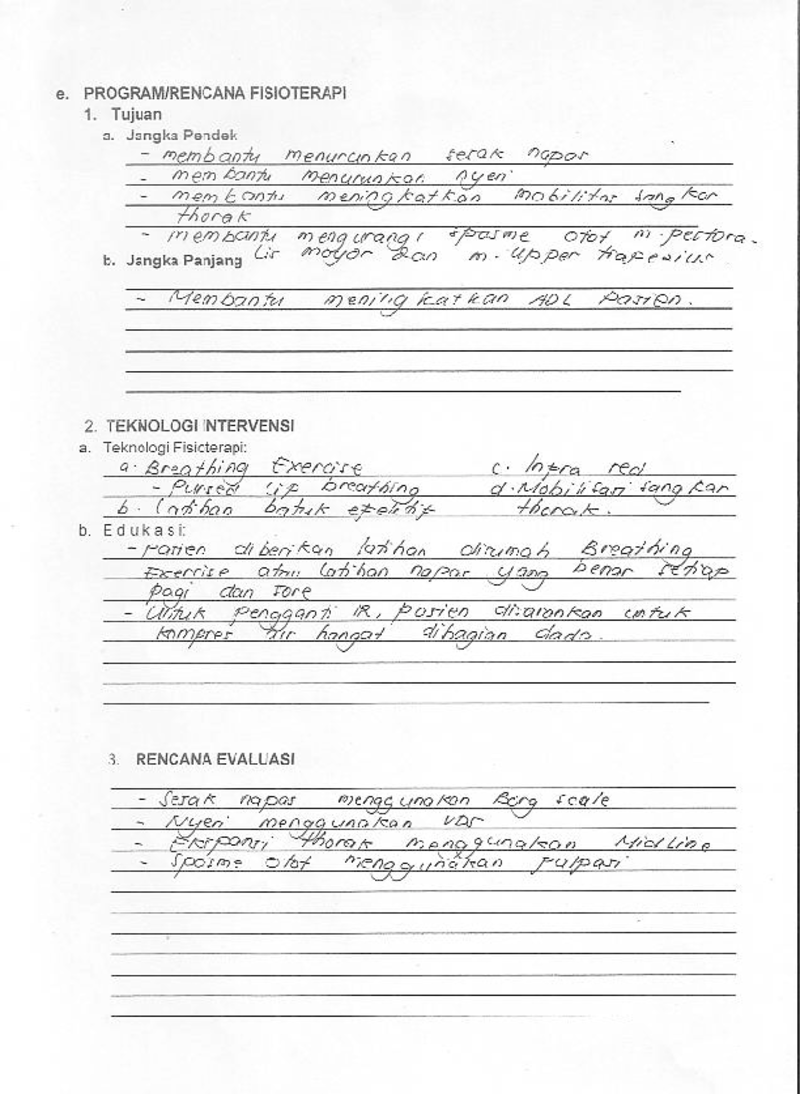 e. PROGRAM/RENCANA FISIOTERAPI
1. Tujuan
a. Jangka Pendek
- membantu menurunkan sesak napas
- membantu menurunkan nyeri
- membantu meningkatkan mobilitas sangkar
thorak
- membantu mengurangi spasme otot m. pectora-
lis mayor dan m. upper trapezius
b. Jangka Panjang
- Membantu meningkatkan ADL pasien.
2. TEKNOLOGI INTERVENSI
a. Teknologi Fisioterapi:
a. Breathing Exercise c. Infra red
- Pursed lip breathing d. Mobilisasi sangkar
b. Latihan batuk efektif thorak.
b. Edukasi:
- Pasien diberikan latihan dirumah Breathing
Exercise atau latihan napas yang benar setiap
pagi dan sore
- Untuk pengganti IR, pasien disarankan untuk
kompres air hangat dibagian dada.
3. RENCANA EVALUASI
- Sesak napas menggunakan Borg scale
- Nyeri menggunakan VDS
- Ekspansi thorak menggunakan Midline
- Spasme otot menggunakan palpasi